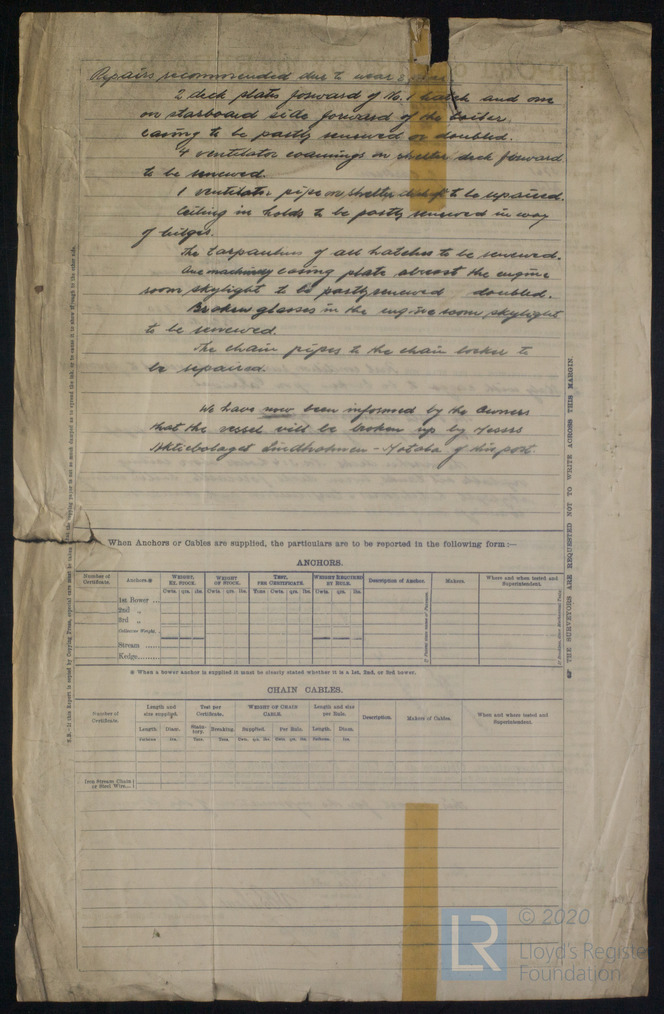 Repairs recommended due to wear &
2 deck plates forward of No. 1 hatch and one
on starboard side forward of the boiler
casing to be partly renewed or doubled.
4 ventilator coamings on shelter deck forward
to be renewed.
1 ventilator pipe on shelter deck to be repaired.
Ceiling in holds to be partly renewed in way
of bilges.
The tarpaulins of all hatches to be renewed.
One machinery casing plate abreast the engine
room skylight to be partly renewed doubled.
Broken glasses in the engine room skylight
to be renewed.
The chain pipes to the chain locker to
be repaired.
We have now been informed by the Owners
that the vessel will be broken up by Messrs
Aktiebolaget Lindholmen - Motala of this port.
When Anchors or Cables are supplied, the particulars are to be reported in the following form:—
ANCHORS.
Number of Certificate. Anchors.* WEIGHT, EX. STOCK. WEIGHT OF STOCK. TEST, PER CERTIFICATE. WEIGHT REQUIRED BY RULE. Description of Anchor. Makers. Where and when tested and Superintendent.
Cwts. qrs. lbs. Cwts. qrs. lbs. Tons Cwts. qrs. lbs. Cwts. qrs. lbs.
1st Bower ...
2nd „
3rd „
Collective Weight.
Stream ......
Kedge.........
* When a bower anchor is supplied it must be clearly stated whether it is a 1st, 2nd, or 3rd bower.
CHAIN CABLES.
Number of Certificate. Length and size supplied. Test per Certificate. WEIGHT OF CHAIN CABLE. Length and size per Rule. Description. Makers of Cables. When and where tested and Superintendent.
Length. Diam. Statutory. Breaking. Supplied. Per Rule. Length. Diam.
Fathoms Ins. Tons. Tons. Cwts. qrs. lbs. Cwts. qrs. lbs. Fathoms. Ins.
Iron Stream Chain or Steel Wire...
THE SURVEYORS ARE REQUESTED NOT TO WRITE ACROSS THIS MARGIN.
LR
© 2020
Lloyd's Register
Foundation